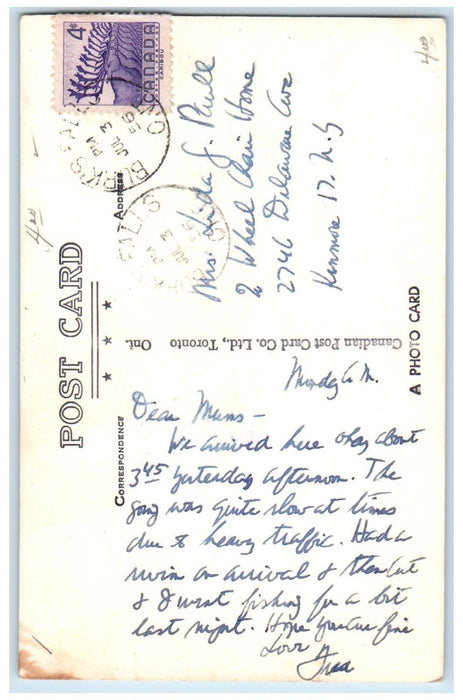 4¢
CANADA
CARIBOU
BURK'S FALLS
PM
JUL 3
56
ONT
4.00
4.00
POST CARD
ADDRESS
Mrs. Lida J. Rull
% Wheel Chair Home
2746 Delaware Ave
Kenmore 17. N.Y
Canadian Post Card Co. Ltd., Toronto Ont.
A PHOTO CARD
CORRESPONDENCE
Monday A.M.
Dear Mums –
We arrived here okay about
3 45 yesterday afternoon. The
going was quite slow at times
due to heavy traffic. Had a
swim on arrival & then
& I went fishing for a bit
last night. Hope you are fine
Love